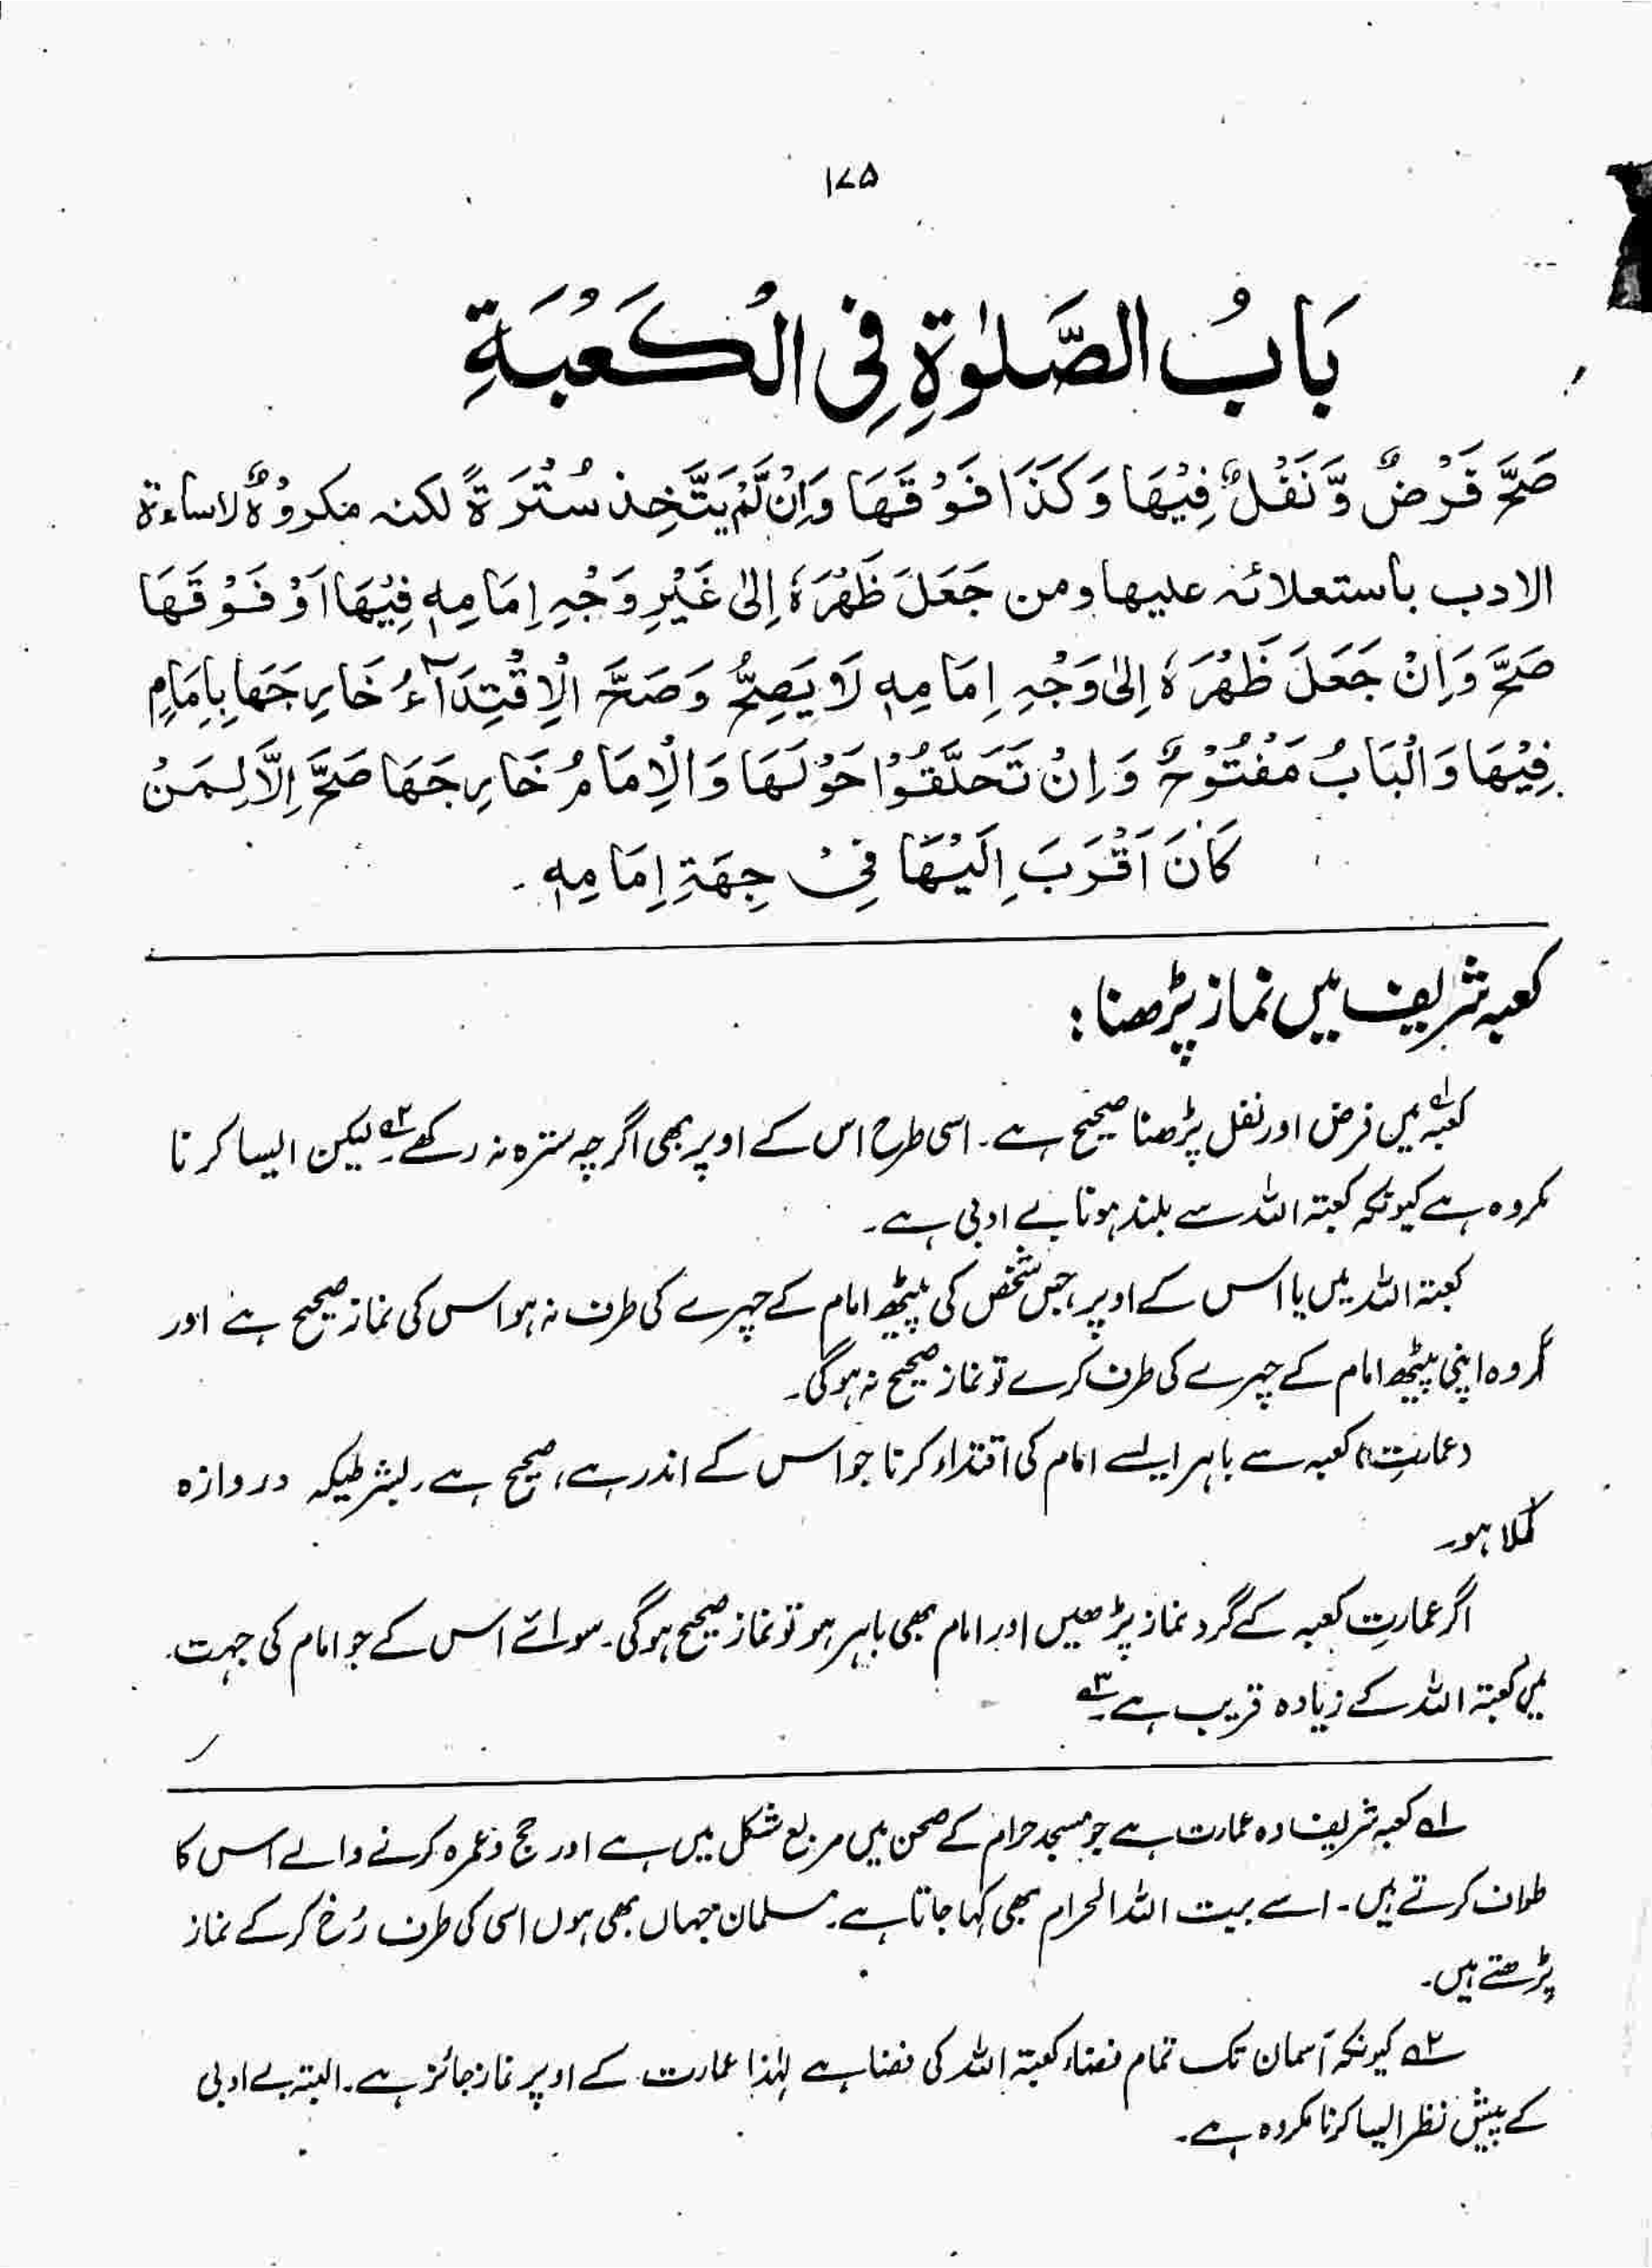 ۱۷۵
بَابُ الصَّلٰوةِ فِی الْکَعْبَةِ
صَحَّ فَرْضٌ وَّنَفْلٌ فِیْهَا وَکَذَا فَوْقَهَا وَاِنْ لَّمْ یَتَّخِذ سُتْرَةً لکنہ مکروْہٌ لاساءۃ
الادب باستعلائہ علیہا ومن جَعَلَ ظَهْرَہٗ اِلٰی غَیْرِ وَجْہِ اِمَامِهٖ فِیْهَا اَوْ فَوْقَهَا
صَحَّ وَاِنْ جَعَلَ ظَهْرَہٗ اِلٰی وَجْہِ اِمَامِهٖ لَا یَصِحُّ وَصَحَّ الْاِقْتِدَآءُ خَارِجَهَا بِاِمَامٍ
فِیْهَا وَالْبَابُ مَفْتُوْحٌ وَاِنْ تَحَلَّقُوْا حَوْلَهَا وَالْاِمَامُ خَارِجَهَا صَحَّ اِلَّا لِمَنْ
کَانَ اَقْرَبَ اِلَیْهَا فِیْ جِهَةِ اِمَامِهٖ۔
کعبہ شریف میں نماز پڑھنا:
کعبہ۱؎ میں فرض اور نفل پڑھنا صحیح ہے۔ اسی طرح اس کے اوپر بھی اگرچہ سترہ نہ رکھے۲؎۔ لیکن ایسا کرنا
مکروہ ہے کیونکہ کعبۃ اللہ سے بلند ہونا بے ادبی ہے۔
کعبۃ اللہ میں یا اس کے اوپر، جس شخص کی پیٹھ امام کے چہرے کی طرف نہ ہو اس کی نماز صحیح ہے اور
اگر وہ اپنی پیٹھ امام کے چہرے کی طرف کرے تو نماز صحیح نہ ہوگی۔
(عمارتِ) کعبہ سے باہر ایسے امام کی اقتداء کرنا جو اس کے اندر ہے، صحیح ہے، بشرطیکہ دروازہ
کھلا ہو۔
اگر عمارتِ کعبہ کے گرد نماز پڑھیں اور امام بھی باہر ہو تو نماز صحیح ہوگی۔ سوائے اس کے جو امام کی جہت
میں کعبۃ اللہ کے زیادہ قریب ہے۳؎۔
۱؎ کعبہ شریف وہ عمارت ہے جو مسجد حرام کے صحن میں مربع شکل میں ہے اور حج و عمرہ کرنے والے اس کا
طواف کرتے ہیں۔ اسے بیت اللہ الحرام بھی کہا جاتا ہے۔ مسلمان جہاں بھی ہوں اسی کی طرف رُخ کرکے نماز
پڑھتے ہیں۔
۲؎ کیونکہ آسمان تک تمام فضاء کعبۃ اللہ کی فضا ہے لہٰذا عمارت کے اوپر نماز جائز ہے۔ البتہ بے ادبی
کے پیشِ نظر ایسا کرنا مکروہ ہے۔